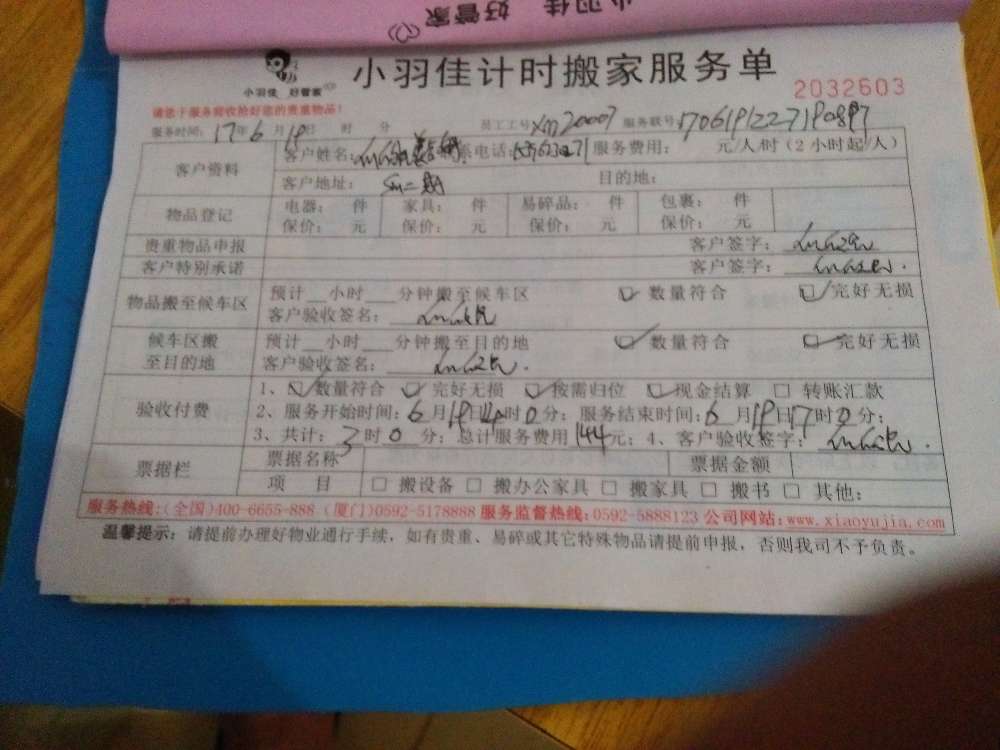 小羽佳 好管家
小羽佳 好管家
小羽佳计时搬家服务单
2032603
请您于服务前收捡好您的贵重物品!
服务时间: 17年6月19日 时 分 员工工号 xm20007 服务联号
客户资料 客户姓名: 联系电话: 服务费用: 元/人/时 (2小时起/人)
客户地址: 目的地:
物品登记 电器: 件 家具: 件 易碎品: 件 包裹: 件
保价: 元 保价: 元 保价: 元 保价: 元
贵重物品申报 客户签字:
客户特别承诺 客户签字:
物品搬至候车区 预计__小时___分钟搬至候车区 数量符合 完好无损
客户验收签名:
候车区搬至目的地 预计__小时___分钟搬至目的地 数量符合 完好无损
客户验收签名:
验收付费 1、数量符合 完好无损 按需归位 现金结算 □ 转账汇款
2、服务开始时间:6月19日14时0分; 服务结束时间:6月19日17时0分;
3、共计: 3时0分; 总计服务费用144元; 4、客户验收签字:
票据栏 票据名称 票据金额
项 目 □ 搬设备 □ 搬办公家具 □ 搬家具 □ 搬书 □ 其他:
服务热线:(全国)400-6655-888 (厦门)0592-5178888 服务监督热线:0592-5888123 公司网站:www.xiaoyujia.com
温馨提示: 请提前办理好物业通行手续, 如有贵重、易碎或其它特殊物品请提前申报, 否则我司不予负责。